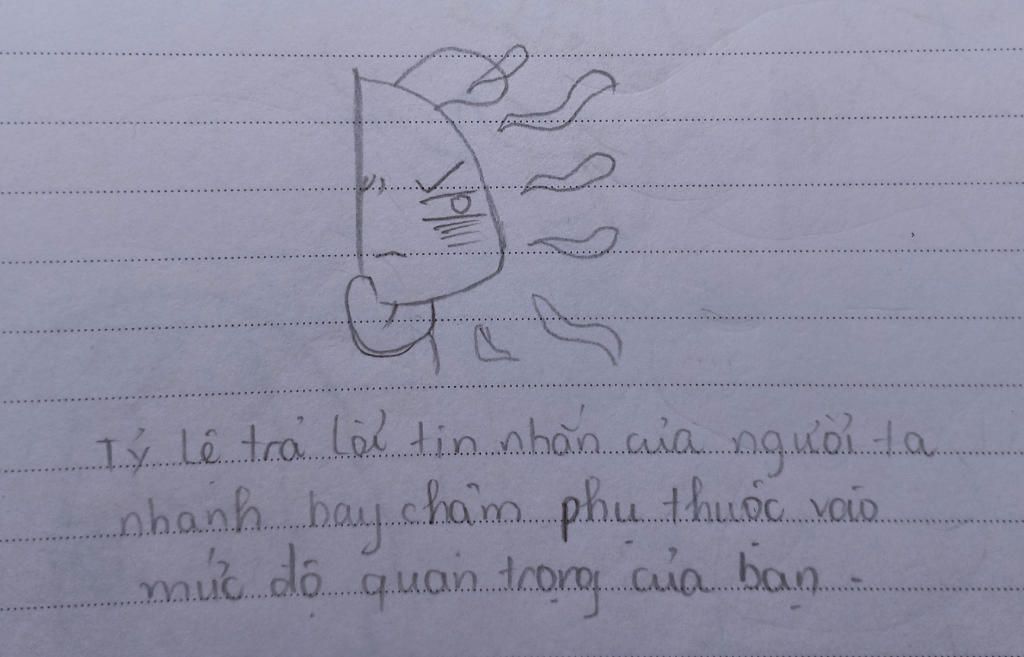 Tỷ lệ trả lời tin nhắn của người ta
nhanh hay chậm phụ thuộc vào
mức độ quan trọng của bạn.